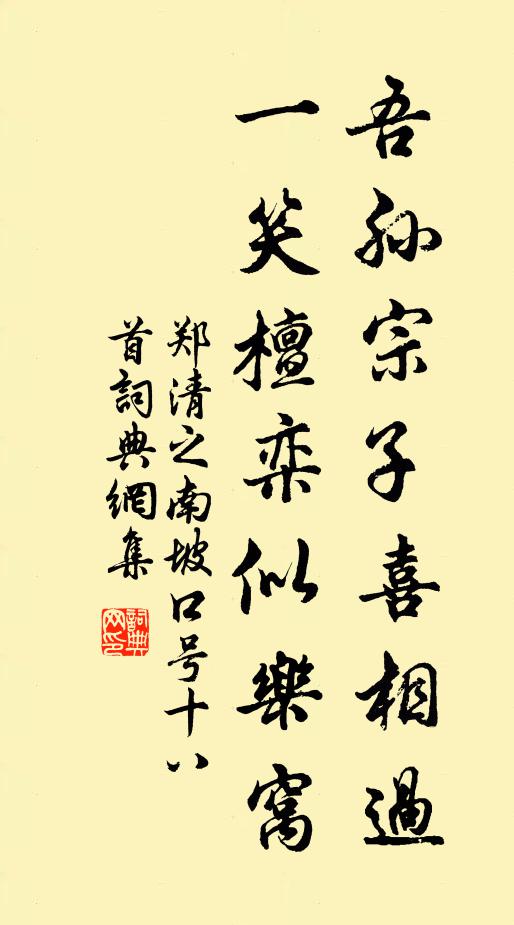 吾孙宗子喜相過
一笑檀奕似樂窩
郑清之南坡口号十八
首詞典網集
詞典網印